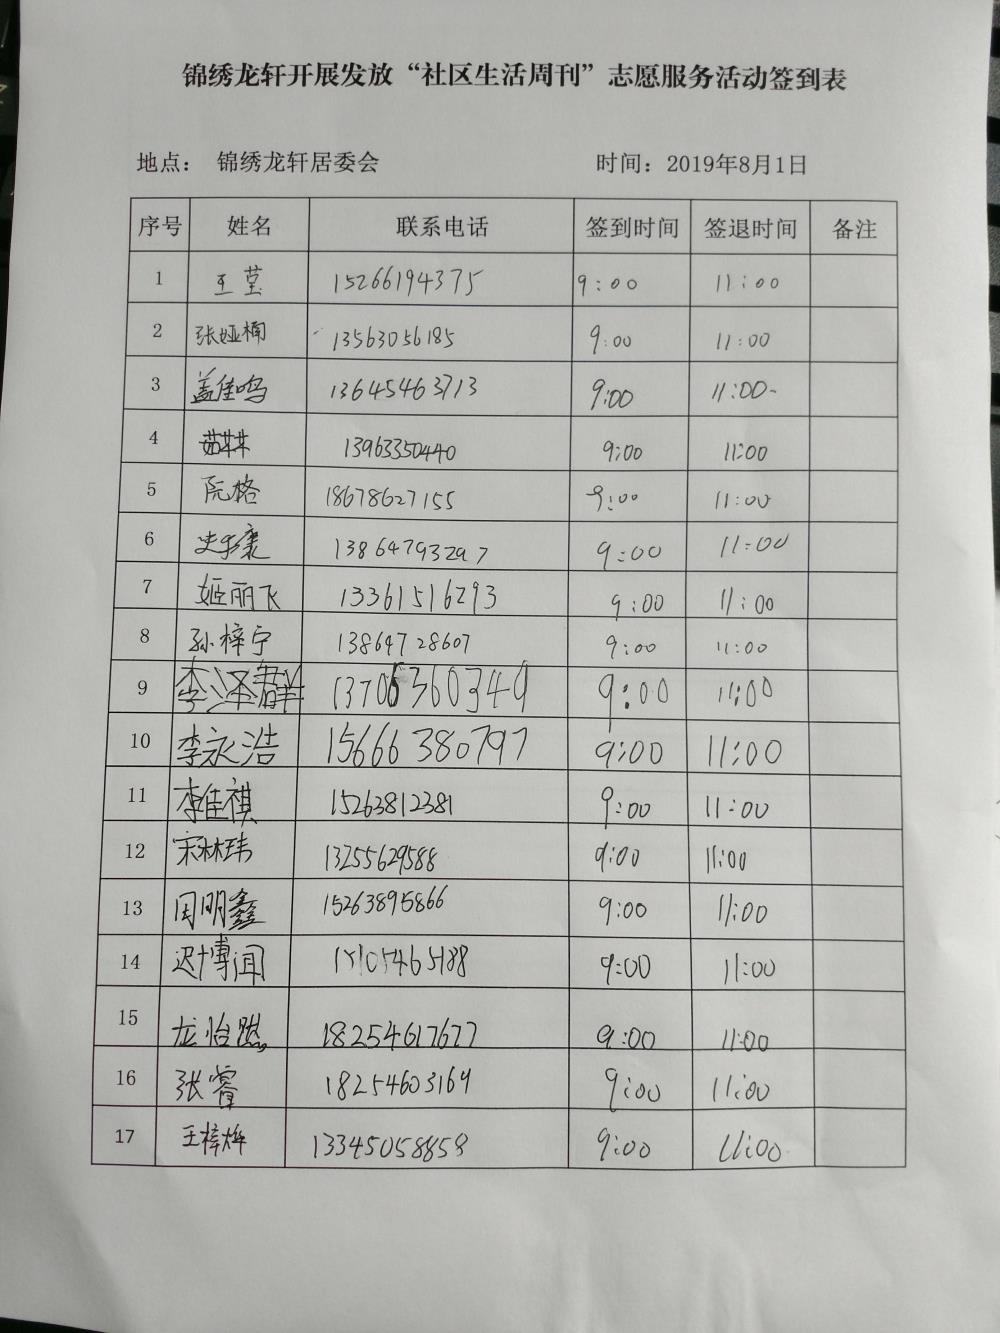 锦绣龙轩开展发放“社区生活周刊”志愿服务活动签到表
地点： 锦绣龙轩居委会 时间：2019年8月1日
序号 姓名 联系电话 签到时间 签退时间 备注
1 王莹 15266194375 9:00 11:00
2 张娅楠 13563056185 9:00 11:00
3 盖佳鸣 13645463713 9:00 11:00
4 13963350440 9:00 11:00
5 阮格 18678627155 9:00 11:00
6 13864793297 9:00 11:00
7 姬丽飞 13361516293 9:00 11:00
8 孙梓宁 13864728607 9:00 11:00
9 李泽群 13706360349 9:00 11:00
10 李永浩 15666380797 9:00 11:00
11 李佳祺 15263812381 9:00 11:00
12 宋林玮 13255629588 9:00 11:00
13 周明鑫 15263895866 9:00 11:00
14 迟博闻 9:00 11:00
15 龙怡然 18254617677 9:00 11:00
16 张睿 18254603169 9:00 11:00
17 王梓烨 13345058858 9:00 11:00